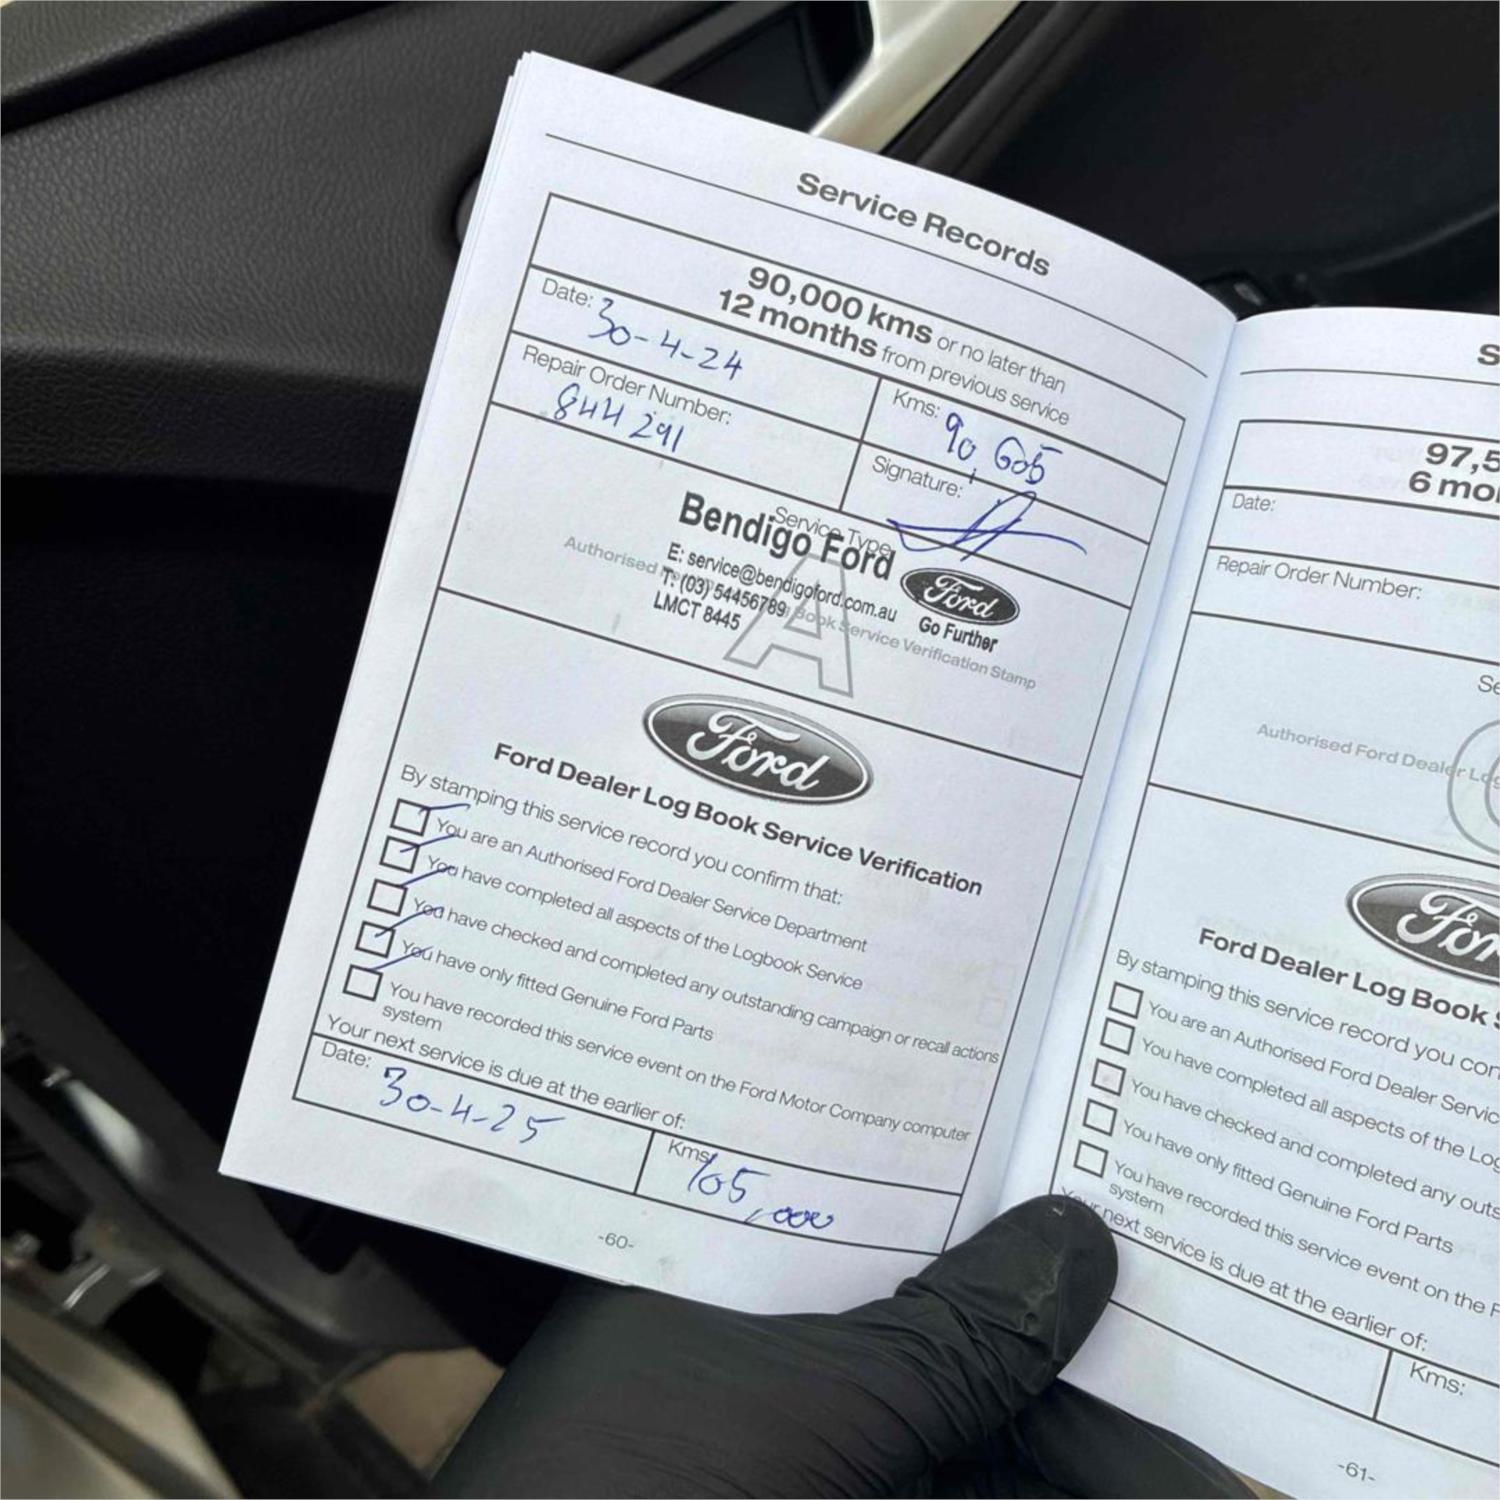 Service Records
90,000 kms or no later than
12 months from previous service
Date: 30-4-24
Kms: 90,605
Repair Order Number:
844291
Signature:
Service Type
Bendigo Ford
E: service@bendigoford.com.au
T: (03) 54456789
LMCT 8445
Ford
Go Further
A
Authorised Book Service Verification Stamp
Ford
Ford Dealer Log Book Service Verification
By stamping this service record you confirm that:
You are an Authorised Ford Dealer Service Department
You have completed all aspects of the Logbook Service
You have checked and completed any outstanding campaign or recall actions
You have only fitted Genuine Ford Parts
You have recorded this service event on the Ford Motor Company computer
system
Your next service is due at the earlier of:
Date: 30-4-25
Kms: 105,000
-60-
S
97,5
6 mo
Date:
Repair Order Number:
Se
Authorised Ford Dealer Lo
Ford
Ford Dealer Log Book S
By stamping this service record you con
You are an Authorised Ford Dealer Servic
You have completed all aspects of the Log
You have checked and completed any outs
You have only fitted Genuine Ford Parts
You have recorded this service event on the F
system
Your next service is due at the earlier of:
Kms:
-61-